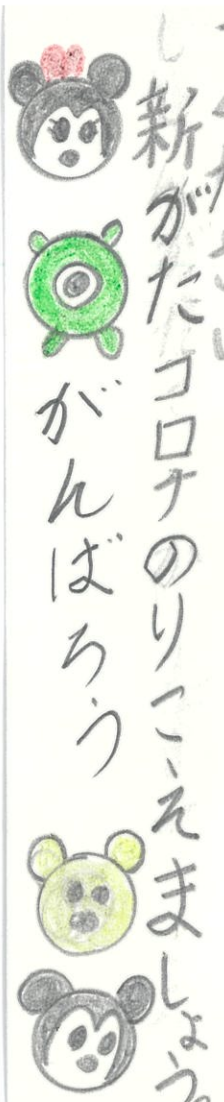 新がたコロナのりこえましょう。
がんばろう